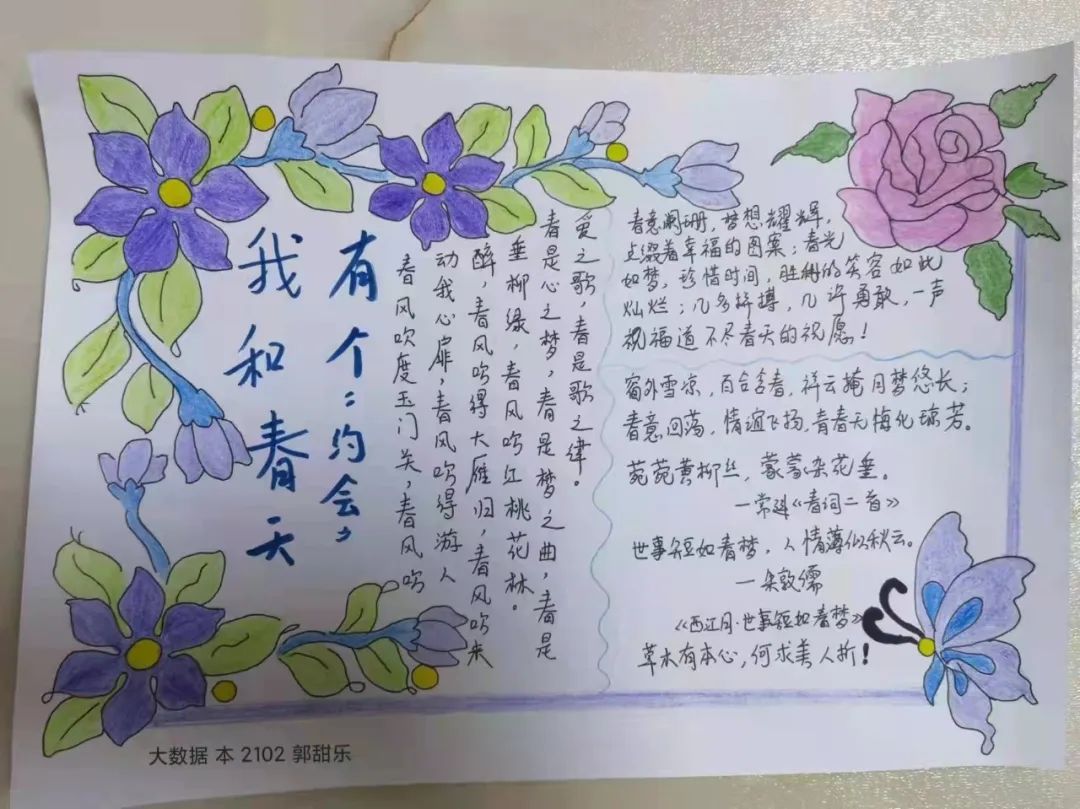 我和春天
有个“约会”
春风吹度玉门关，春风吹
动我心扉，春风吹得游人
醉，春风吹得大雁归，春风吹来
垂柳绿，春风吹红桃花林。
春是心之梦，春是梦之曲，春是
爱之歌，春是歌之律。
春意阑珊，梦想耀辉，
点缀着幸福的图案；春光
如梦，珍惜时间，胜利的笑容如此
灿烂；几多拼搏，几许勇敢，一声
祝福道不尽春天的祝愿！
窗外雪凉，百合含春，祥云掩月梦悠长；
春意回荡，情谊飞扬，青春无悔化琼芳。
菀菀黄柳丝，蒙蒙杂花垂。
—常建《春词二首》
世事短如春梦，人情薄似秋云。
—朱敦儒
《西江月·世事短如春梦》
草木有本心，何求美人折！
大数据 本 2102 郭甜乐